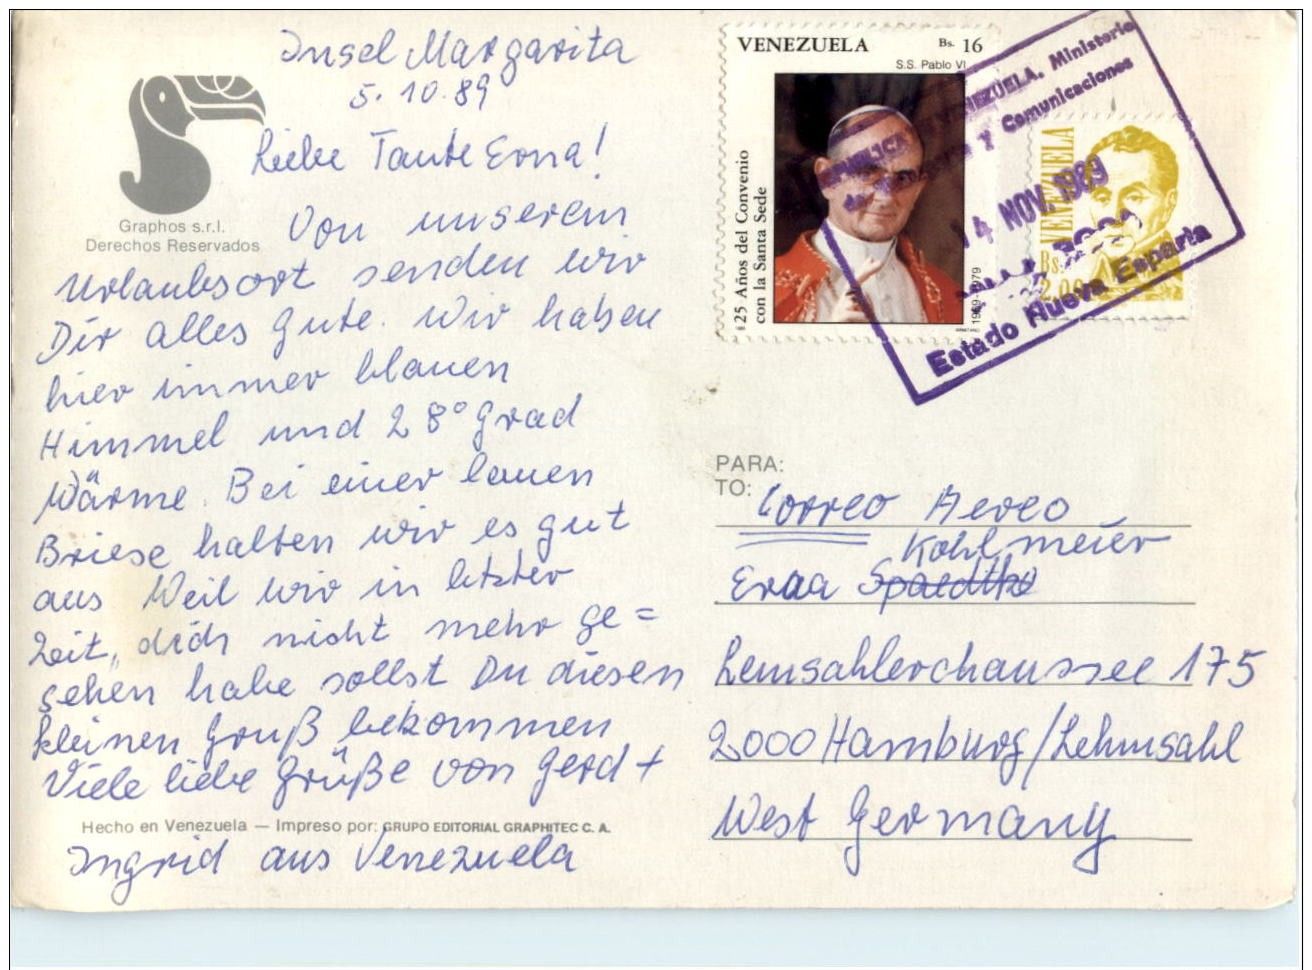 Insel Margarita
5. 10. 89
Liebe Tante Erna!
Von unserem
Urlaubsort senden wir
Dir alles gute. Wir haben
hier immer blauen
Himmel und 28° Grad
Wärme. Bei einer lauen
Briese halten wir es gut
aus Weil wir in letzter
Zeit, dich nicht mehr ge=
sehen habe sollst Du diesen
kleinen Gruß bekommen
Viele liebe Grüße von Gerd +
Ingrid aus Venezuela
Graphos s.r.l.
Derechos Reservados
Hecho en Venezuela — Impreso por: GRUPO EDITORIAL GRAPHITEC C. A.
VENEZUELA Bs. 16
S.S. Pablo VI
25 Años del Convenio
con la Santa Sede
1969-1979
VENEZUELA
Bs. 2,00
REPUBLICA DE VENEZUELA. Ministerio
de Transporte Y Comunicaciones
14 NOV. 1989
Estado Nueva Esparta
PARA:
TO:
Correo Aereo
Kohlmeier
Erna Spaedtke
Lemsahlerchaussee 175
2000 Hamburg/Lehmsahl
West Germany